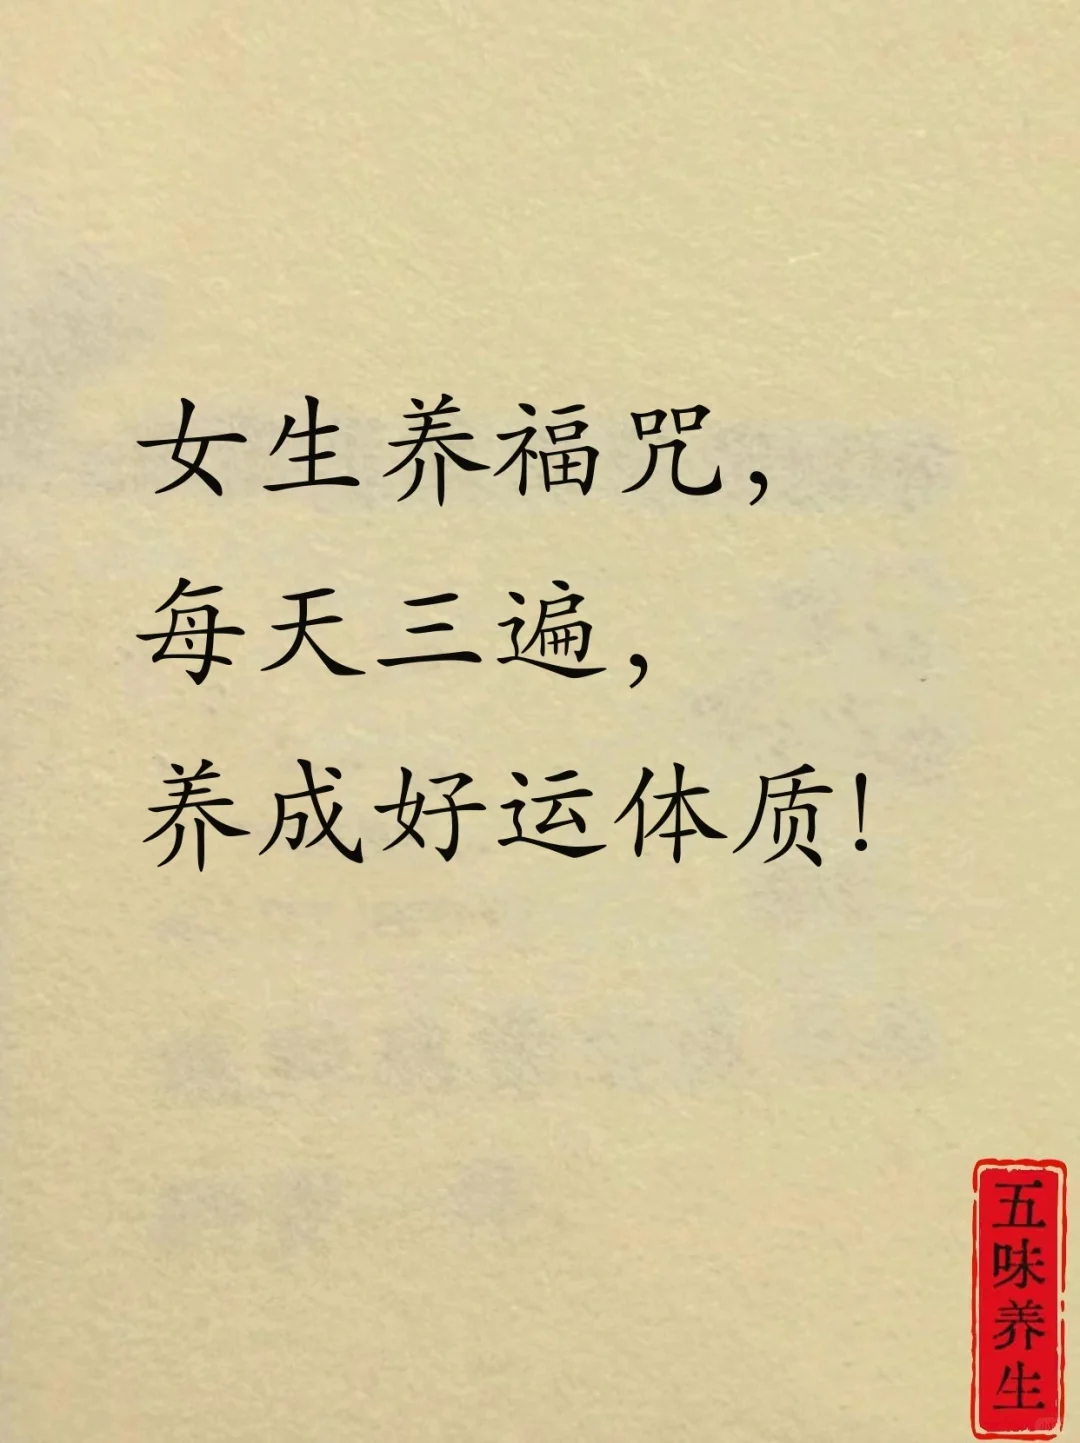 女生养福咒，
每天三遍，
养成好运体质！
五味养生